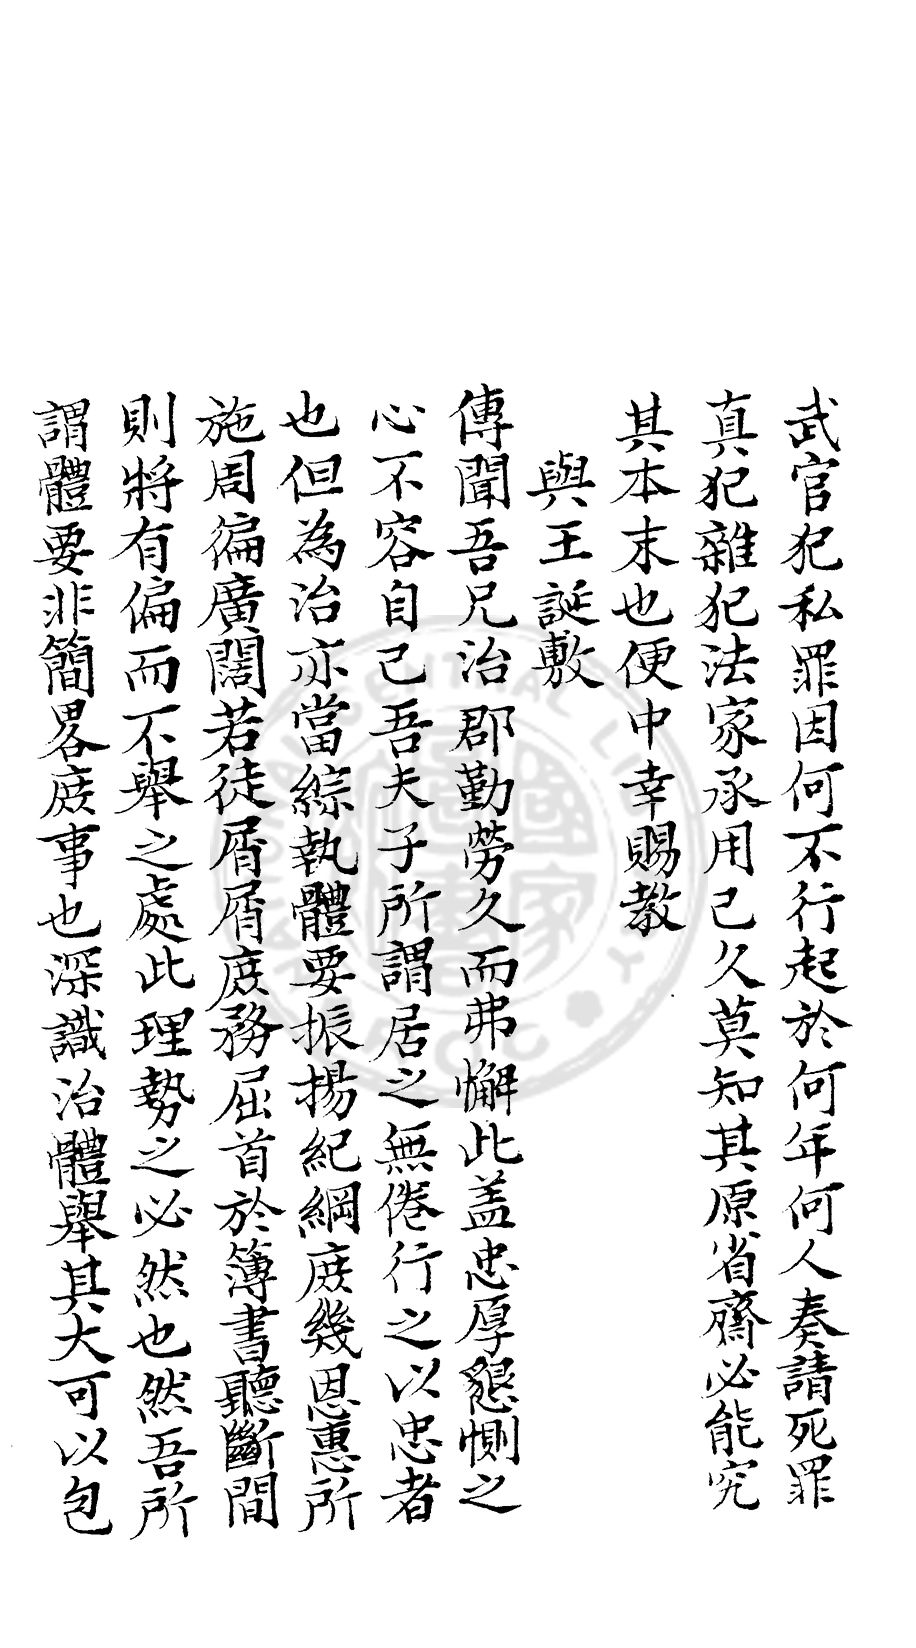 武官犯私罪因何不行起於何年何人奏請死罪
真犯雜犯法家承用已久莫知其原省齋必能究
其本末也便中幸賜教
與王誕敷
傳聞吾兄治郡勤勞久而弗懈此盖忠厚懇惻之
心不容自已吾夫子所謂居之無倦行之以忠者
也但為治亦當綜執體要振揚紀綱庻幾恩惠所
施周徧廣闊若徒屑屑庻務屈首於簿書聽斷間
則將有偏而不舉之處此理勢之必然也然吾所
謂體要非簡畧庻事也深識治體舉其大可以包